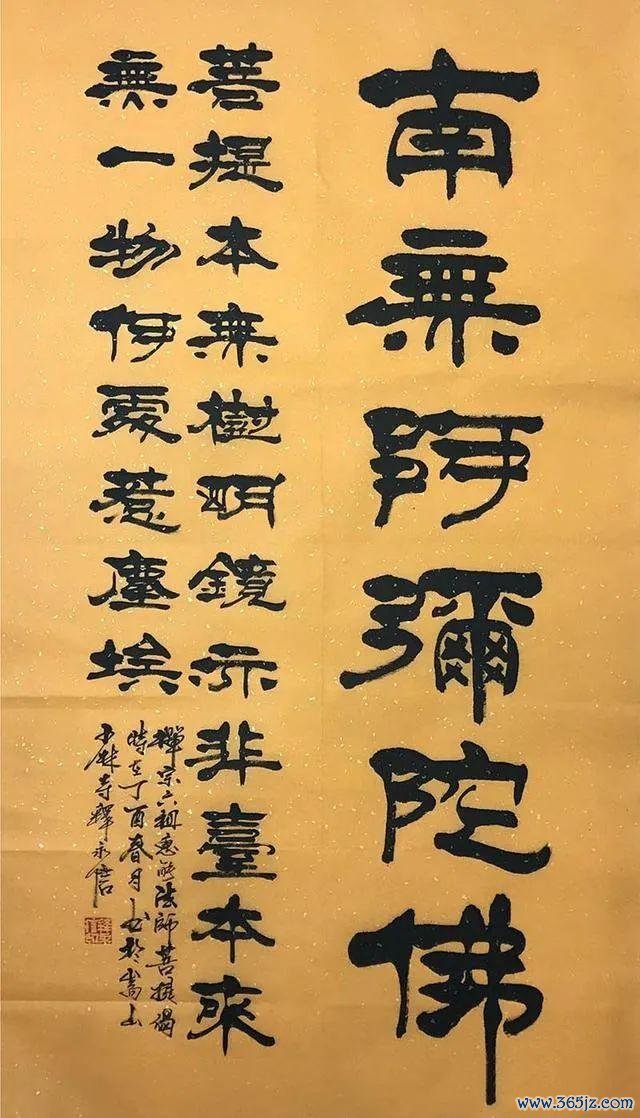 南無阿彌陀佛
菩提本無樹明鏡亦非臺本來
無一物何處惹塵埃
禪宗六祖惠能法師菩提偈
時在丁酉春月書於嵩山
少林寺釋永信
www.365jz.com